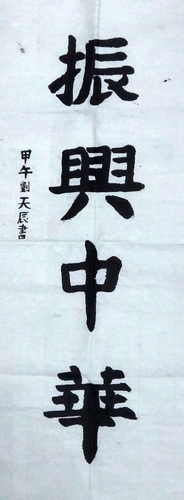 振興中華
甲午劉天辰書